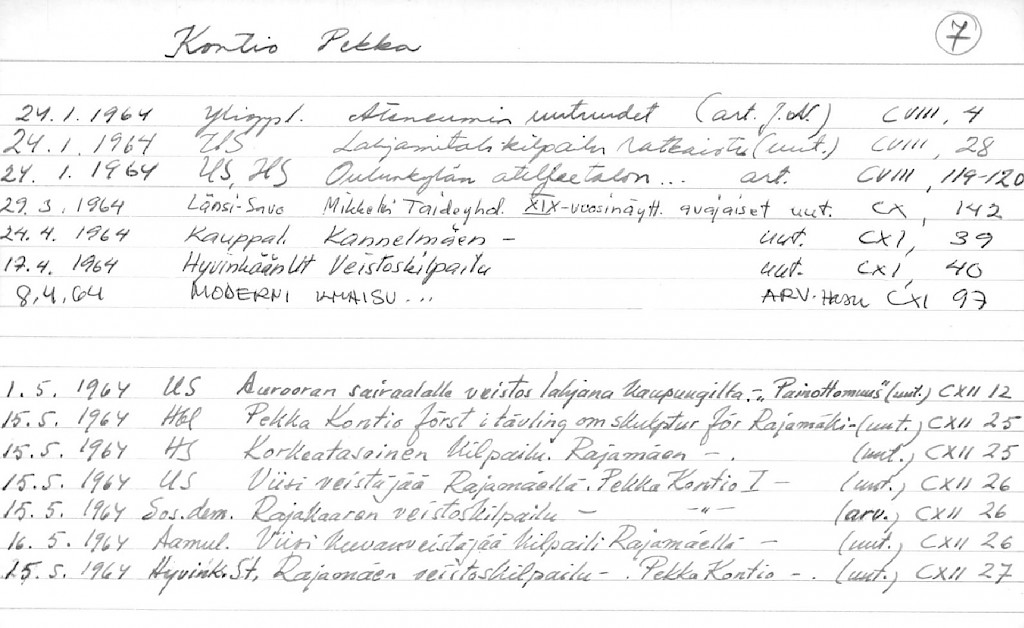 Kontio Pekka 7
24.1.1964 Ylioppl. Ateneumin uutuudet (art. J.N.) CVIII, 4
24.1.1964 US Lahjamitalikilpailu ratkaistu (uut.) CVIII, 28
24.1.1964 US, HS Oulunkylän ateljeetalon... art. CVIII, 119-120
29.3.1964 Länsi-Savo Mikkelin Taideyhd. XIX-vuosinäytt. avajaiset uut. CX, 142
24.4.1964 Kauppal. Kannelmäen - uut. CXI, 39
17.4.1964 Hyvinkään Veistoskilpailu uut. CXI, 40
8.4.64 MODERNI ... ARV. CXI 97
1.5.1964 US Aurooran sairaalalle veistos lahjana kaupungilta.-"Painottomuus" (uut.) CXII 12
15.5.1964 Hbl Pekka Kontio först i tävling om skulptur för Rajamäki- (uut.) CXII 25
15.5.1964 HS Korkeatasoinen kilpailu. Rajamäen - . (uut.) CXII 25
15.5.1964 US Viisi veistäjää Rajamäellä. Pekka Kontio I - (uut.) CXII 26
15.5.1964 Sos.dem. Rajakaaren veistoskilpailu - -"- (arv.) CXII 26
16.5.1964 Aamul. Viisi kuvanveistäjää kilpaili Rajamäellä - (uut.) CXII 26
15.5.1964 Hyvink.St. Rajamäen veistoskilpailu - . Pekka Kontio - . (uut.) CXII 27